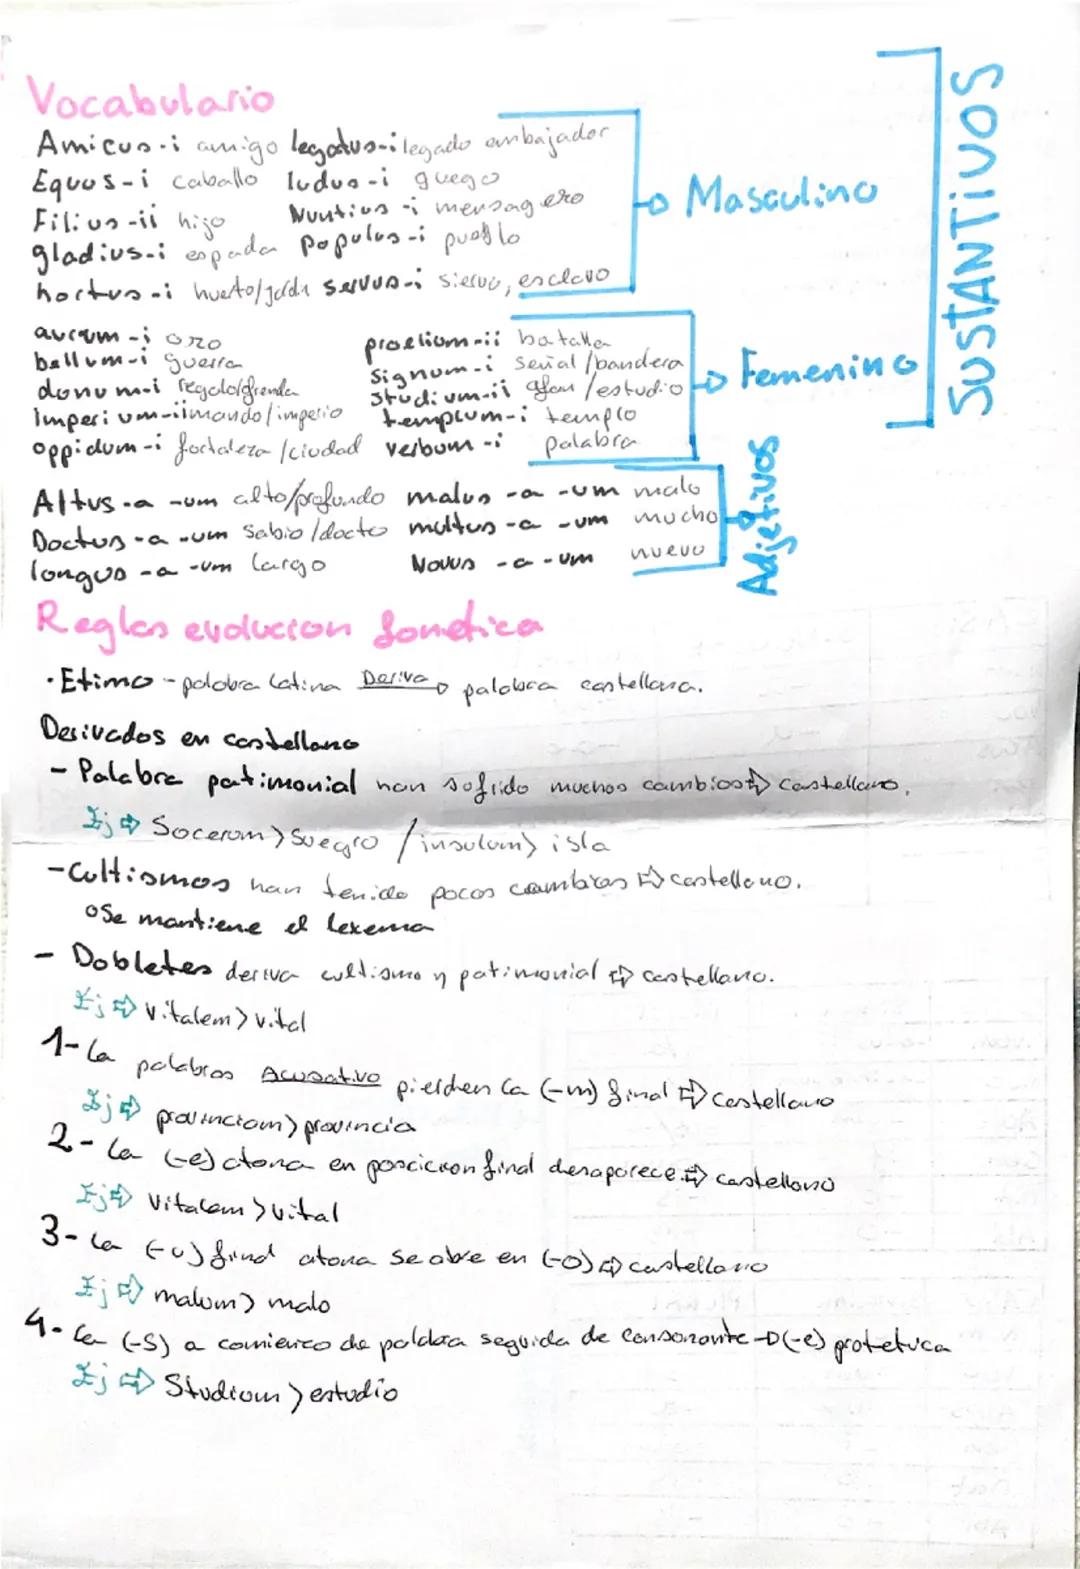 Vocabulario
Amicus-i amigo legatus-i legado embajador
Equus-i caballo ludus-i guego
Filius-ii hijo Nuntius-i mensagero
gladius-i espada Populus-i pueblo
hortus-i huerto/jardín servus-i siervo, esclavo
Masculino
SUSTANTIVOS
aurum-i oro proelium-ii batalla
bellum-i guerra Signum-i señal/bandera
donum-i regalo/ofrenda Studium-ii afan/estudio
Imperium-ii mando/imperio templum-i templo
oppidum-i fortaleza/ciudad verbum-i palabra
Femenino
Altus-a-um alto/profundo malus-a-um malo
Doctus-a-um Sabio/docto multus-a-um mucho
longus-a-um largo Novus-a-um nuevo
Adjetivos
Reglas evolucion fonetica
·Etimo - palabra latina Deriva → palabra castellana.
Derivados en castellano
- Palabra patimonial han sofrido muchos cambios ⇒ Castellano.
Ej ⇒ Socerum > Suegro / insulam > isla
- Cultismos han tenido pocos cambios ⇒ castellano.
o Se mantiene el lexema
- Dobletes deriva cultismo y patimonial ⇒ castellano.
Ej ⇒ Vitalem > vital
1- La palabras Acusativo pierden la (-m) final ⇒ Castellano
Ej ⇒ provinciam > provincia
2- La (-e) atona en poscicion final desaparece. ⇒ castellano
Ej ⇒ Vitalem > vital
3- La (-u) final atona se abre en (-o) ⇒ castellano
Ej ⇒ malum > malo
4- La (-S) a comienzo de palabra seguida de consonante → (-e) protetica
Ej ⇒ Studium > estudio